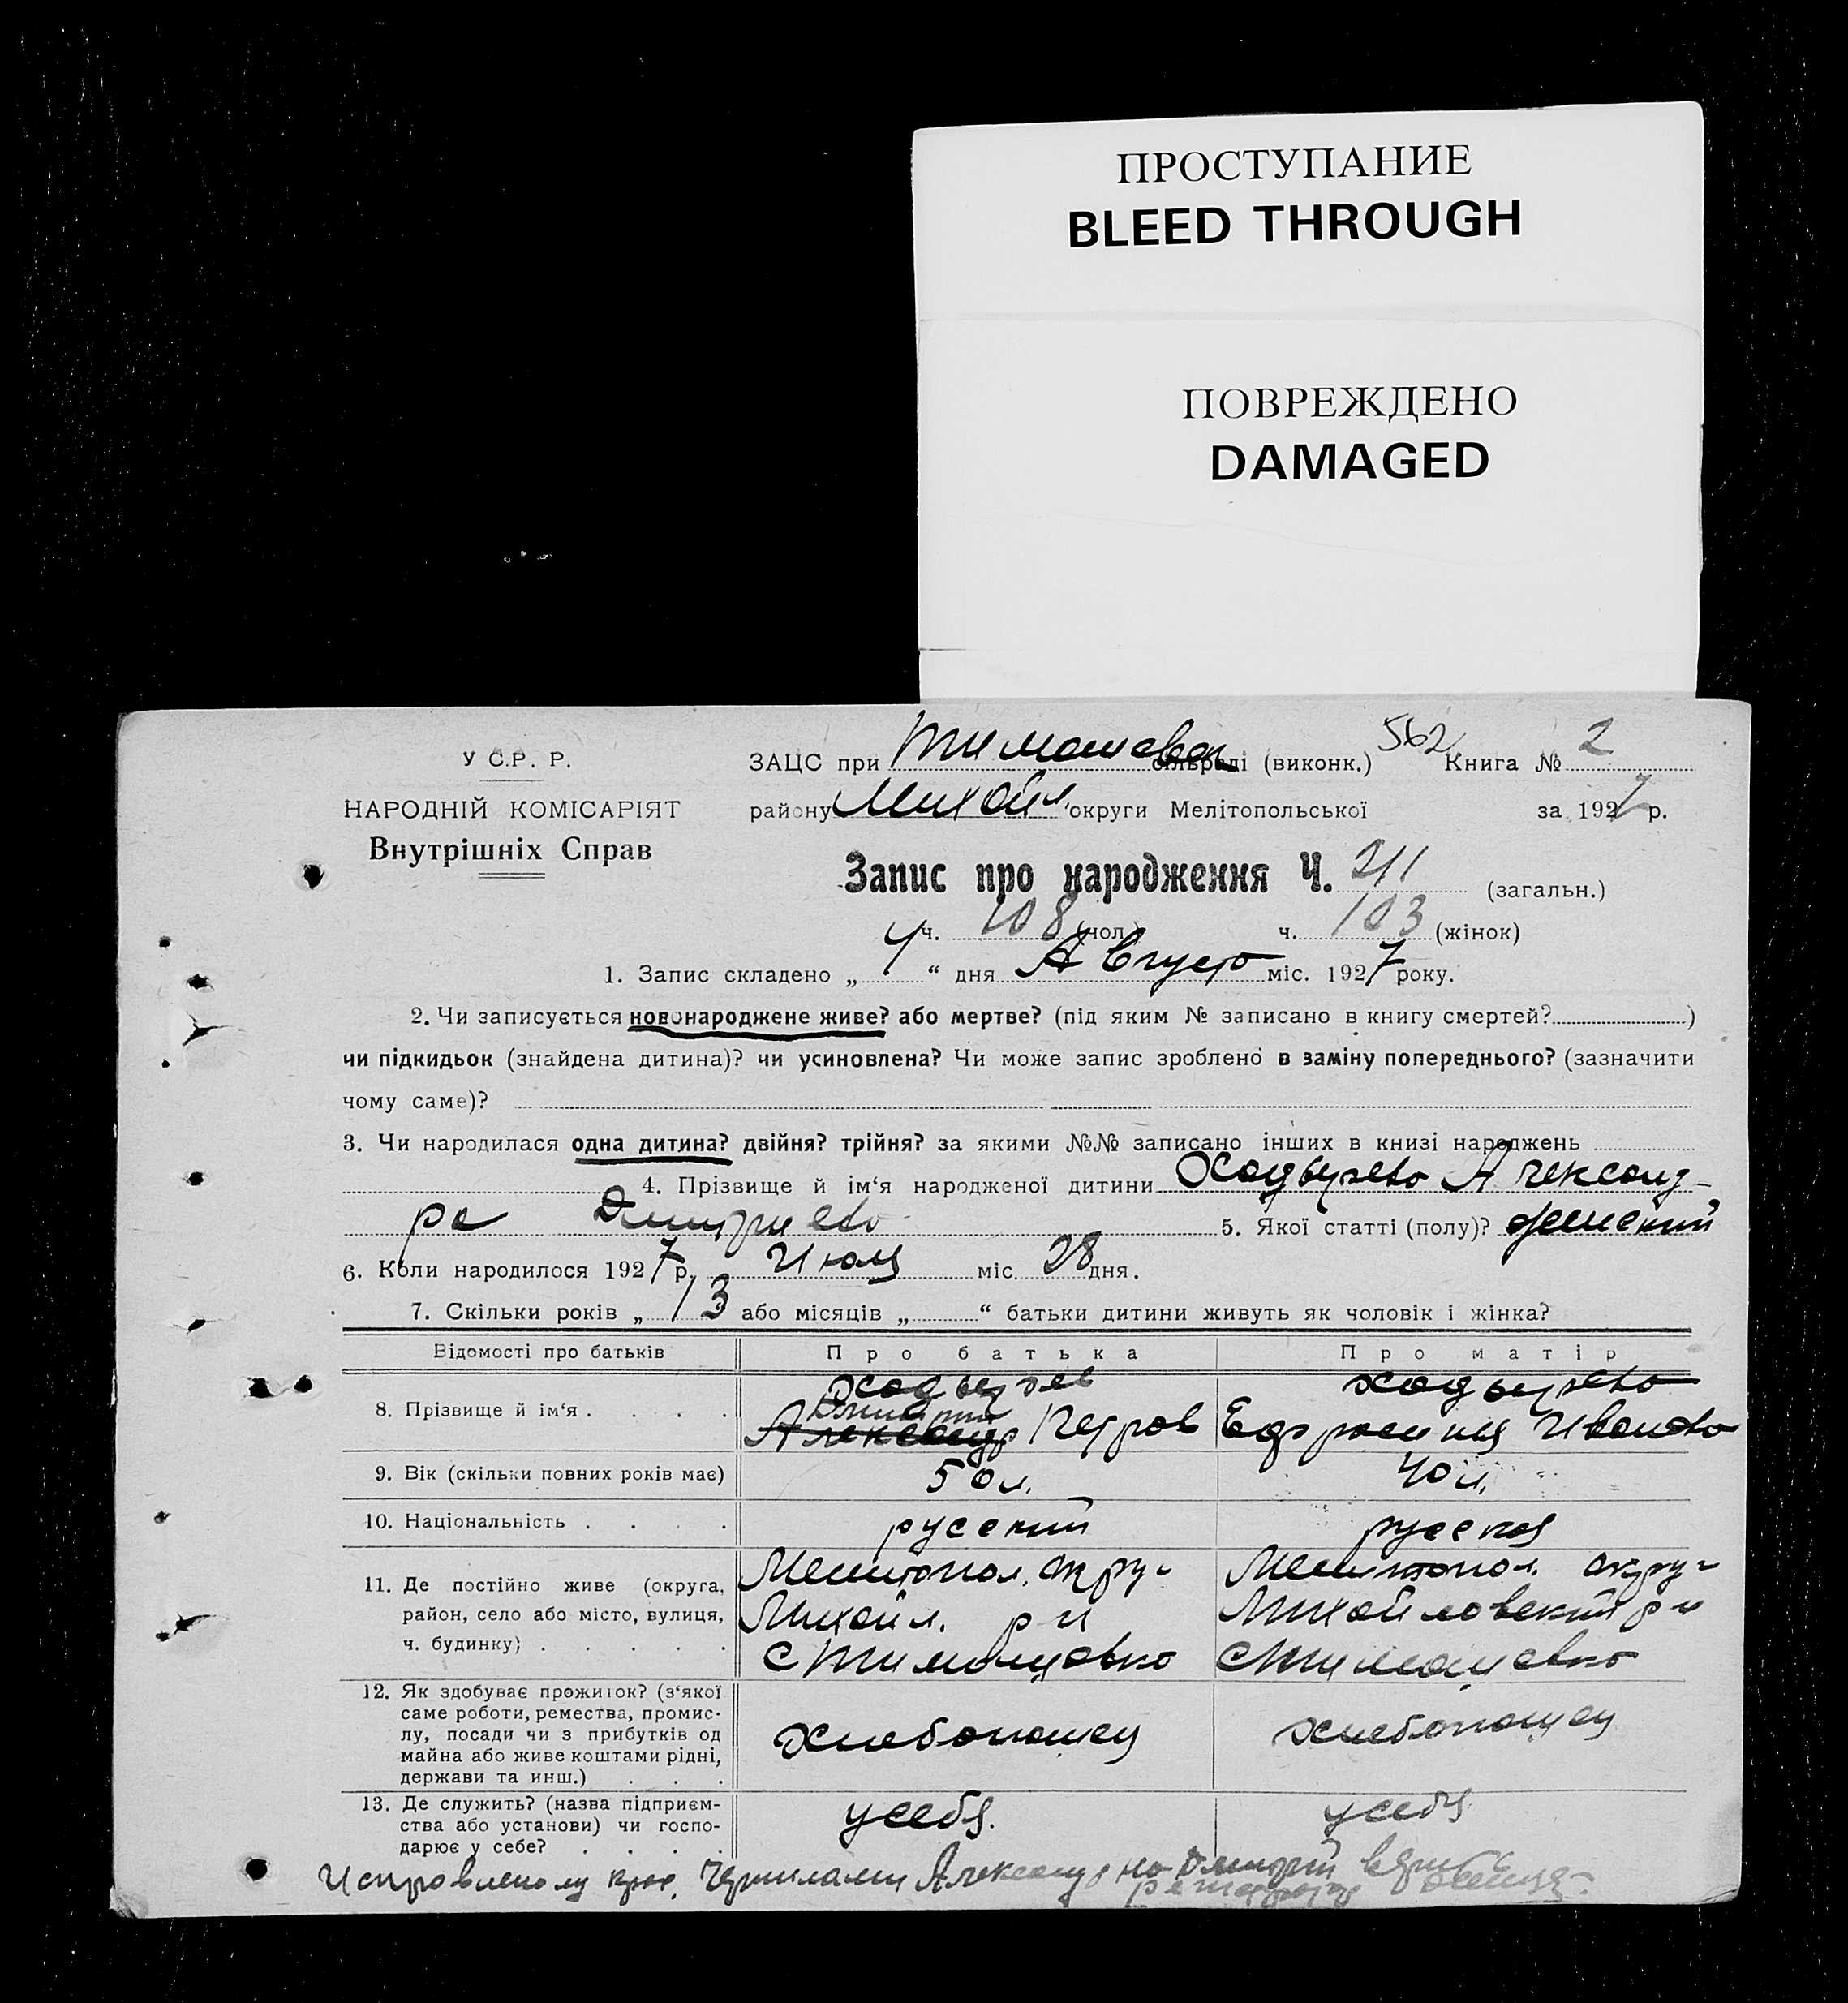 ПРОСТУПАНИЕ
BLEED THROUGH
ПОВРЕЖДЕНО
DAMAGED
У С.Р. Р.
НАРОДНІЙ КОМІСАРІЯТ
Внутрішніх Справ
ЗАЦС при Тимошевск сільраді (виконк.) 562 Книга № 2
району Михайл. округи Мелітопольської за 1927 р.
Запис про народження Ч. 211 (загальн.)
ч. 108 (чол.) ч. 103 (жінок)
1. Запис складено „ 4 “ дня Августа міс. 1927 року.
2. Чи записується новонароджене живе? або мертве? (під яким № записано в книгу смертей? )
чи підкидьок (знайдена дитина)? чи усиновлена? Чи може запис зроблено в заміну попереднього? (зазначити
чому саме)?
3. Чи народилася одна дитина? двійня? трійня? за якими №№ записано інших в книзі народжень
4. Прізвище й ім‘я народженої дитини Александ-
ра Дмитриева 5. Якої статті (полу)? женский
6. Коли народилося 1927 р. Июля міс. 28 дня.
7. Скільки років „ 13 або місяців „ “ батьки дитини живуть як чоловік і жінка?
Відомості про батьків Про батька Про матір
8. Прізвище й ім‘я
Дмитрий
Александр Петров Ефросиния Иванова
9. Вік (скільки повних років має) 50 л. 40 л.
10. Національність русский русская
11. Де постійно живе (округа, Мелитопол. окру- Мелитопол. окру-
район, село або місто, вулиця, Михайл. р н Михайловский р н
ч. будинку) С Тимошовка С Тимошовка
12. Як здобуває прожиток? (з‘якої
саме роботи, ремества, промис-
лу, посади чи з прибутків од
майна або живе коштами рідні,
держави та инш.)
хлебопашец хлебопашец
13. Де служить? (назва підприєм-
ства або установи) чи госпо-
дарює у себе?
у себя. у себя
Исправленому крас. Чернилами Александр на Дмитрий верить